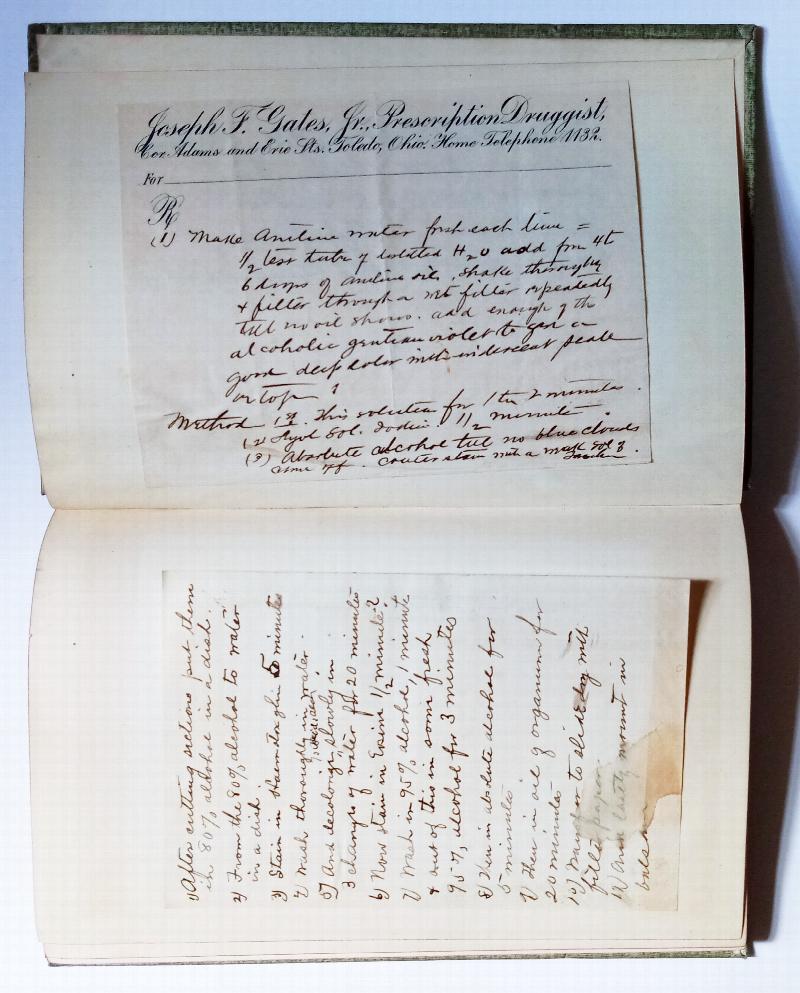 Joseph F. Gates, Jr., Prescription Druggist,
Cor. Adams and Erie Sts. Toledo, Ohio. Home Telephone 1132.
For
℞
(1) Make Aniline water fresh each time =
1/2 test tube of distilled H2O add from 4 to
6 drops of aniline oil, shake thoroughly
& filter through a wet filter repeatedly
till no oil shows. add enough of the
alcoholic gentian violet to give a
good deep color with iridescent scale
on top ?
Method 1st. This solution for 1 to 2 minutes.
(2) Sol. Iodine 1 1/2 minute.
(3) Absolute alcohol till no blue clouds
come off. Counter stain with a weak sol of
1) After cutting sections put them
in 80% alcohol in a dish.
2) From the 80% alcohol to water
in a dish.
3) Stain in 5 minutes
4) Wash thoroughly in water
5) And decolorize slowly in
3 changes of water for 20 minutes
6) Now stain in Eosine 1/2 minute?
7) Wash in 95% alcohol, 1 minute
& out of this in some fresh
95% alcohol for 3 minutes
8) Then in absolute alcohol for
5 minutes
9) Then in oil of origanum for
20 minutes
10) Transfer to slide dry with
filter paper.
11) And lastly mount in
balsam